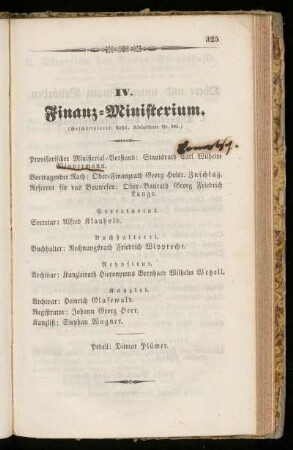 325
IV.
Finanz-Ministerium.
(Geschäftslocal: Kassel, Königsstraße Nr.
Provisorischer Ministerial-Vorstand: Staatsrath Carl Wilhelm
Zimmermann.
Vortragender Rath: Ober-Finanzrath Georg Heinr. Zuschlag.
Referent für das Bauwesen: Ober-Baurath Georg Friedrich
Lange.
Secretariat.
Secretar: Alfred Klauhold.
Buchhalterei.
Buchhalter: Rechnungsrath Friedrich Wipprecht.
Repositur.
Archivar: Kanzleirath Hieronymus Bernhard Wilhelm Wepell.
Kanzlei.
Archivar: Heinrich Glasewald.
Registrator: Johann Georg Heer.
Kanzlist: Stephan Wagner.
Pedell: Ditmar Plümer.